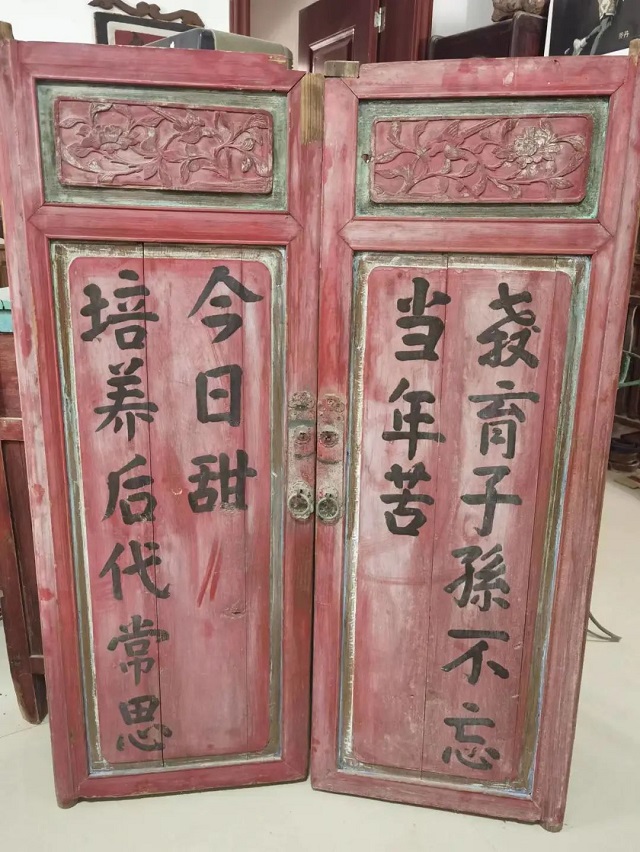 教育子孫不忘
当年苦
培养后代常思
今日甜